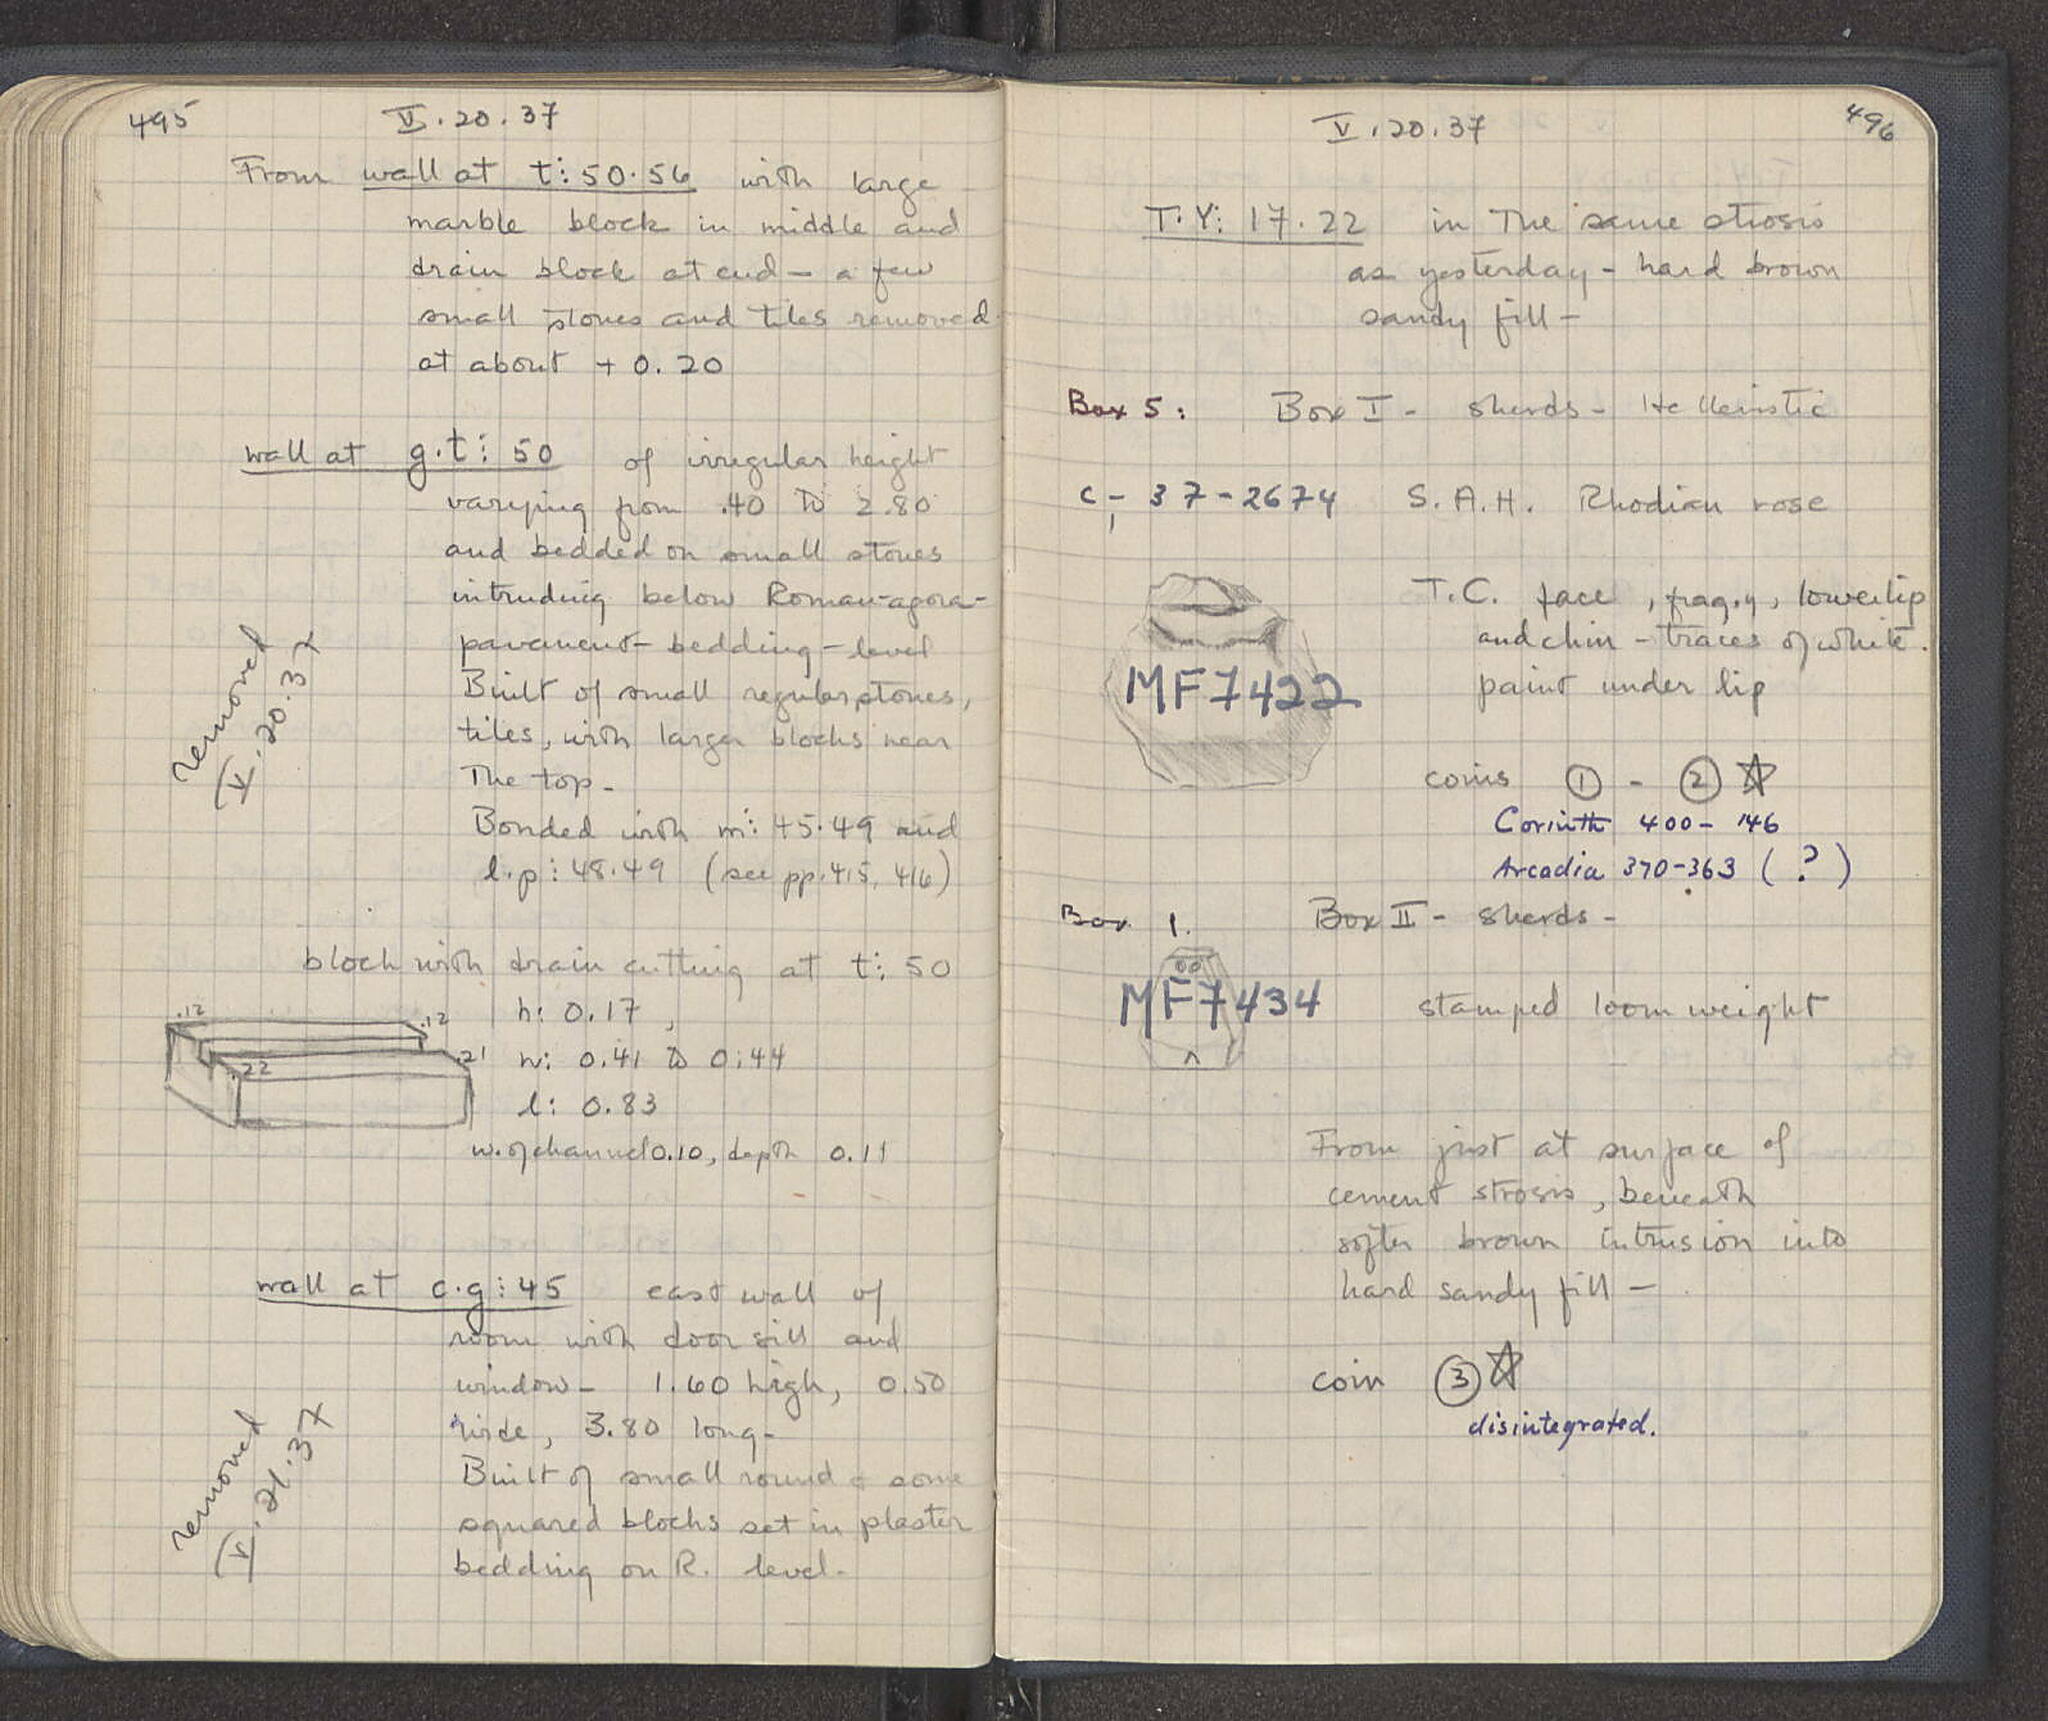 495
V.20.37
From wall at t: 50.56 with large
marble block in middle and
drain block at end – a few
small stones and tiles removed
at about + 0.20
wall at g.t: 50 of irregular height
varying from .40 to 2.80
and bedded on small stones
intruding below Roman-agora-
pavement-bedding-level
Built of small regular stones,
tiles, with larger blocks near
The top –
Bonded with m: 45.49 and
l.p: 48.49 (see pp. 415, 416)
removed
V.20.37
block with drain cutting at t: 50
h: 0.17,
w: 0.41 to 0.44
l: 0.83
w. of channel 0.10, depth 0.11
.12
.12
.21
.22
wall at c.g: 45 east wall of
room with door sill and
window – 1.60 high, 0.50
wide, 3.80 long –
Built of small round & some
squared blocks set in plaster
bedding on R. level –
removed
V.21.37
496
V.20.37
T.Y: 17.22 in The same strosis
as yesterday – hard brown
sandy fill –
Box 5: Box I – sherds – Hellenistic
C – 37 – 2674 S.A.H. Rhodian rose
T.C. face, frag.y, lower lip
and chin – traces of white
paint under lip
MF7422
coins ① – ② ☆
Corinth 400 – 146
Arcadia 370–363 (?)
Box 1. Box II – sherds –
MF7434 stamped loomweight
From just at surface of
cement strosis, beneath
softer brown intrusion into
hard sandy fill –
coin ③ ☆
disintegrated.